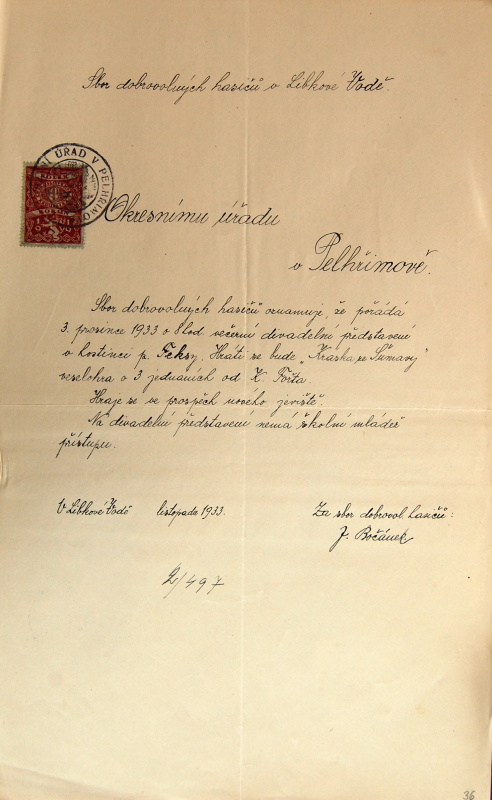 Sbor dobrovolných hasičů v Libkové Vodě.
ÚŘAD V PELHŘIMO
KOLEK
Okresnímu úřadu
v Pelhřimově.
Sbor dobrovolných hasičů oznamuje, že pořádá
3. prosince 1933 o 8 hod večerní divadelní představení
v hostinci p. Feksy. Hráti se bude „Kráska ze Šumavy"
veselohra o 3 jednáních od K. Fořta.
Hraje se ve prospěch nového jeviště.
Na divadelní představení nemá školní mládež
přístupu.
V Libkové Vodě listopadu 1933.
Za sbor dobrovol. hasičů:
J. Bočánek
2/497
36